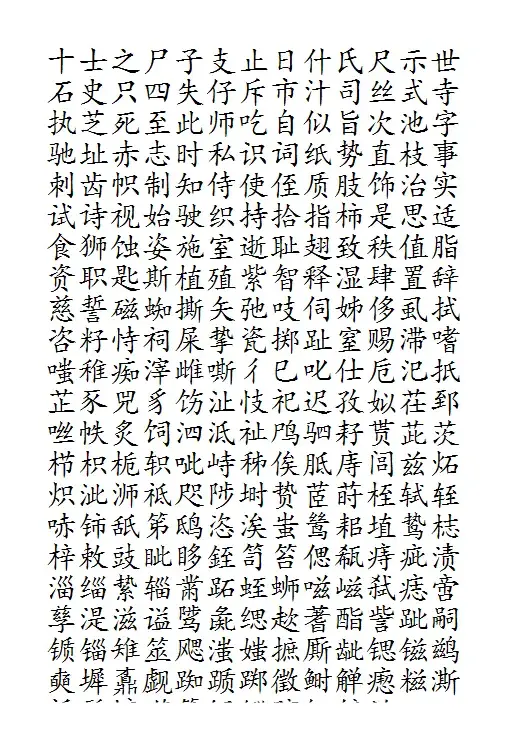 十士之尸子支止日什氏尺示世
石史只四失仔斥市汁司丝式寺
执芝死至此师吃自似旨次池字
驰址赤志时私识词纸势直枝事
刺齿帜制知侍使侄质肢饰治实
试诗视始驶织持拾指柿是思适
食狮蚀姿施室逝耻翅致秩值脂
资职匙斯植殖紫智释湿肆置辞
慈誓磁蜘撕矢弛吱伺姊侈虱拭
咨籽恃祠屎挚瓷掷趾窒赐滞嗜
嗤稚痴滓雌嘶彳巳叱仕卮汜抵
芷豕兕豸饬沚忮祀迟孜姒茬郅
咝帙炙饲泗泜祉鸤驷耔贳茈茨
栉枳栀轵呲峙秭俟胝庤闾兹炻
炽泚浉祗咫陟埘贽茝莳桎轼轾
哧铈舐笫鸱恣涘蚩鸶耜埴鸷梽
梓敕豉眦眵铚笥笞偲瓻痔疵渍
淄缁絷辎黹跖蛭蛳嗞嵫弑痣啻
孳湜滋谥骘彘缌趑蓍酯訾跐嗣
锧锱雉筮飔滍媸摭厮龇锶镃鹚
奭墀鼒觑踟踬踯徵鲥觯瘛糍澌